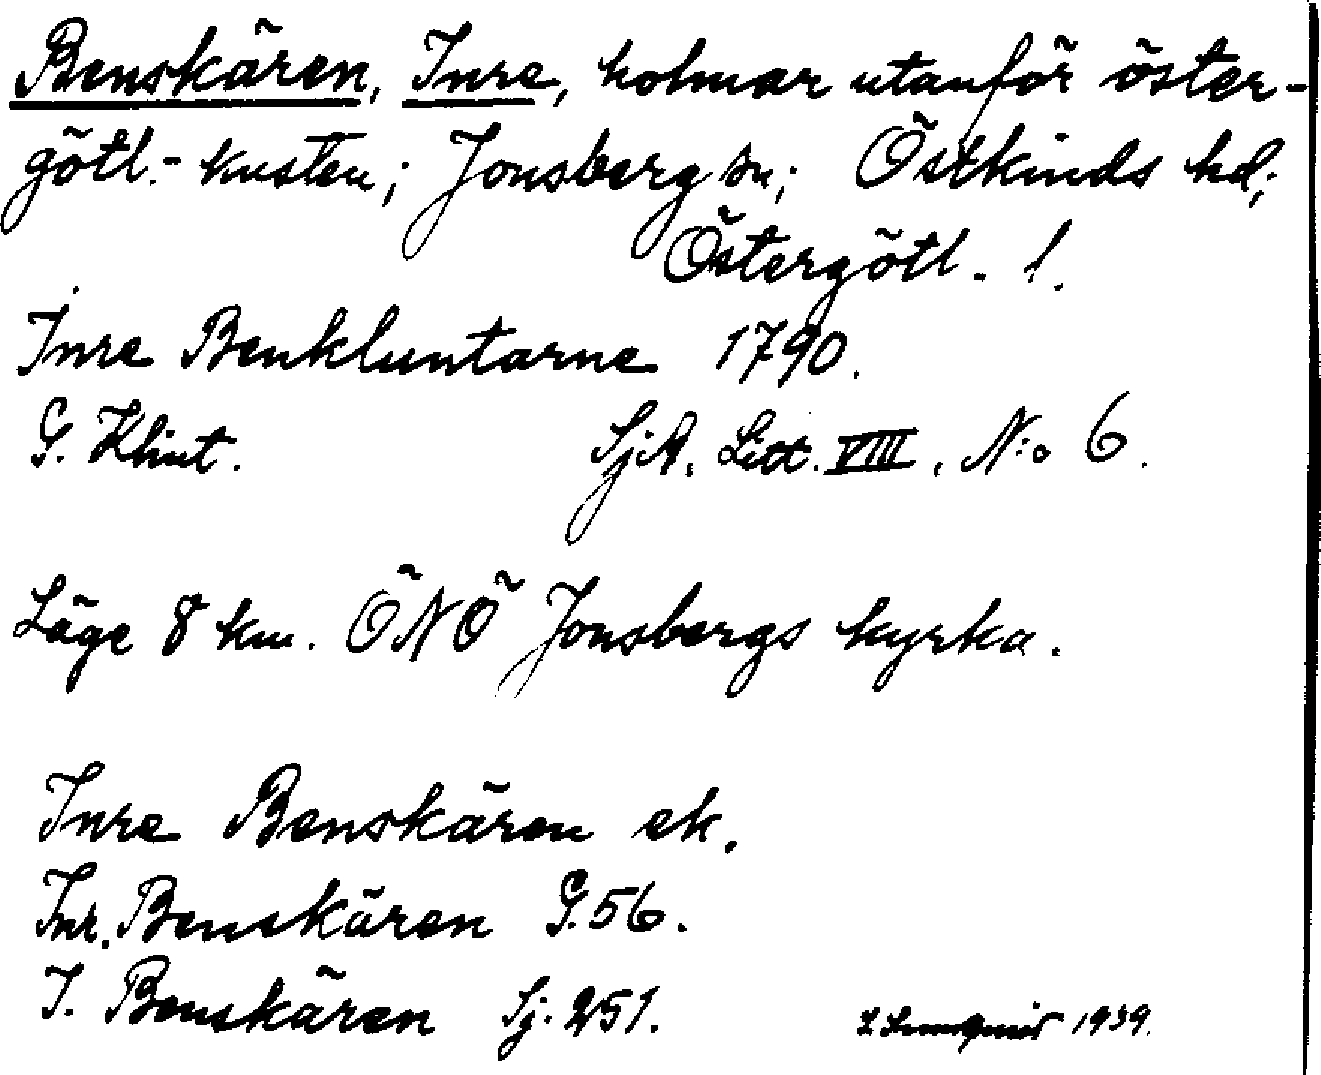 Benskären, Inre, holmar utanför öster-
götl.- kusten; Jonsberg sn; Östkinds hd;
Östergötl. l.
Inre Benkluntarne 1790.
G. Klint. SjA. Litt. VIII, N:o 6.
Läge 8 km. ÖNÖ Jonsbergs kyrka.
Inre Benskären ek.
Inr. Benskären G.56.
I. Benskären Sj. 251.
1939.